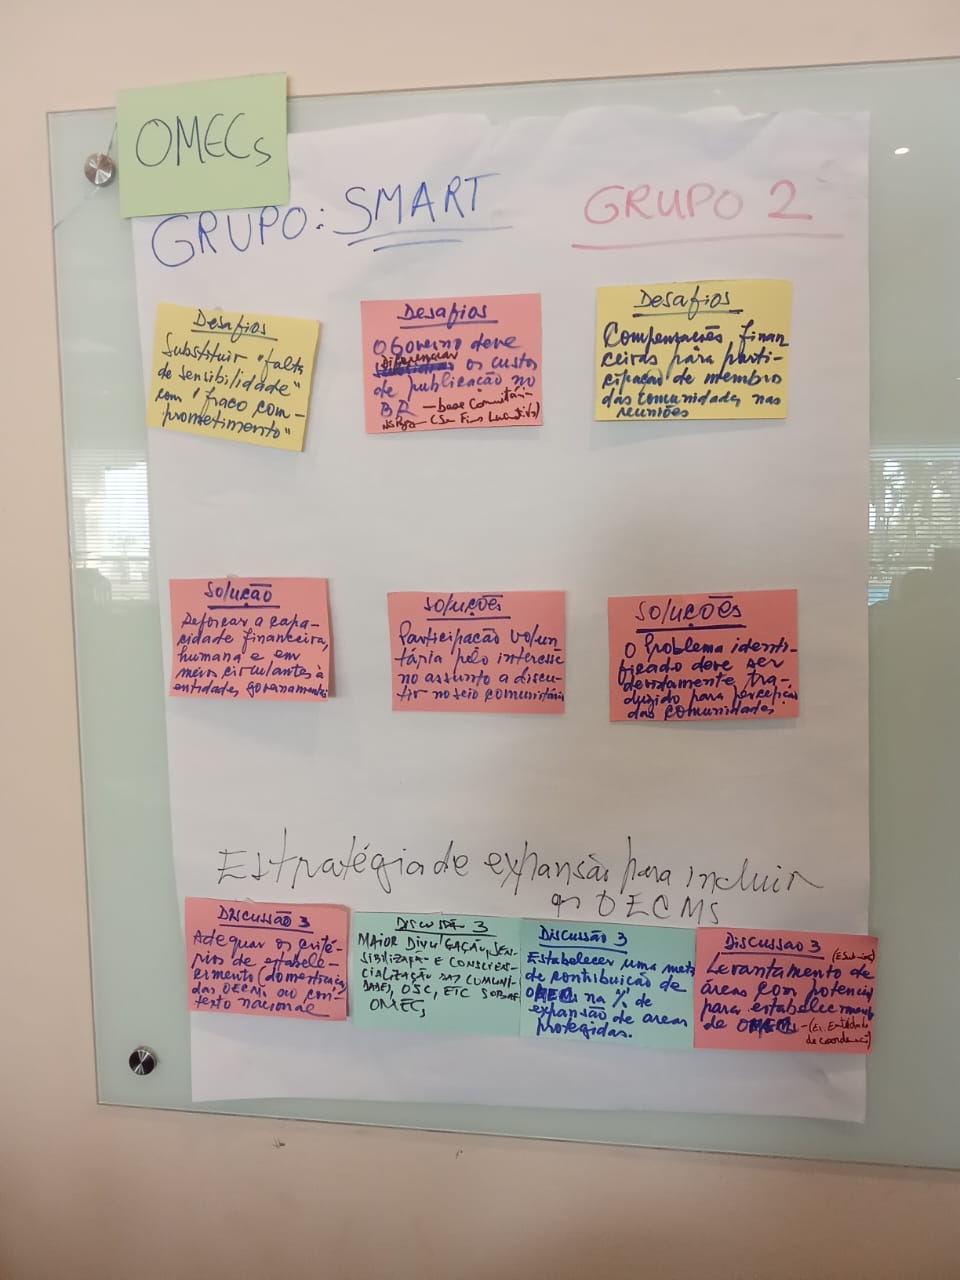 OMECs
GRUPO: SMART
GRUPO 2
Desafios
Substituir "falta
de sensibilidade"
com "fraco com-
prometimento"
Desafios
O Governo deve
Diferenciar
os custos
de publicação no
BR - base Comunitária
(Sem Fins Lucrativos)
Desafios
Compensações finan
ceiras para parti-
cipação de membro
das comunidades nas
reuniões
Solução
Reforçar a capa-
cidade financeira,
humana e em
meios circulantes à
entidades governamentais
Soluções
Participação volun
tária pelo interesse
no assunto a discu-
tir no seio comunitário
Soluções
O Problema identi-
ficado deve ser
devidamente tra-
duzido para percepção
das comunidades
Estratégia de expansão para incluir
as OECMS
Discussão 3
Adequar os crité-
rios de estabele-
cimento (domesticação)
das OECMs ao con-
texto nacional
Discussão 3
MAIOR DIVULGAÇÃO, SEN-
SIBILIZAÇÃO E CONSCIEN-
CIALIZAÇÃO DAS COMUNI-
DADES, OSC, ETC SOBRE
OMECs
Discussão 3
Estabelecer uma meta
de contribuição de
na % de
expansão de areas
protegidas.
Discussao 3
Levantamento de
áreas com potencial
para estabelecimento
de
(Ex. Entidade
de coordenação)